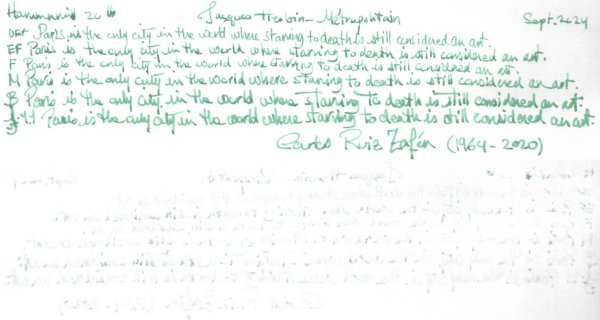 Hammermill 20 lb Jacques Herbin - Métropolitain Sept. 2024
UEF Paris is the only city in the world where starving to death is still considered an art.
EF Paris is the only city in the world where starving to death is still considered an art.
F Paris is the only city in the world where starving to death is still considered an art.
M Paris is the only city in the world where starving to death is still considered an art.
B Paris is the only city in the world where starving to death is still considered an art.
1.1 Paris is the only city in the world where starving to death is still considered an art.
Carlos Ruiz Zafón (1964-2020)